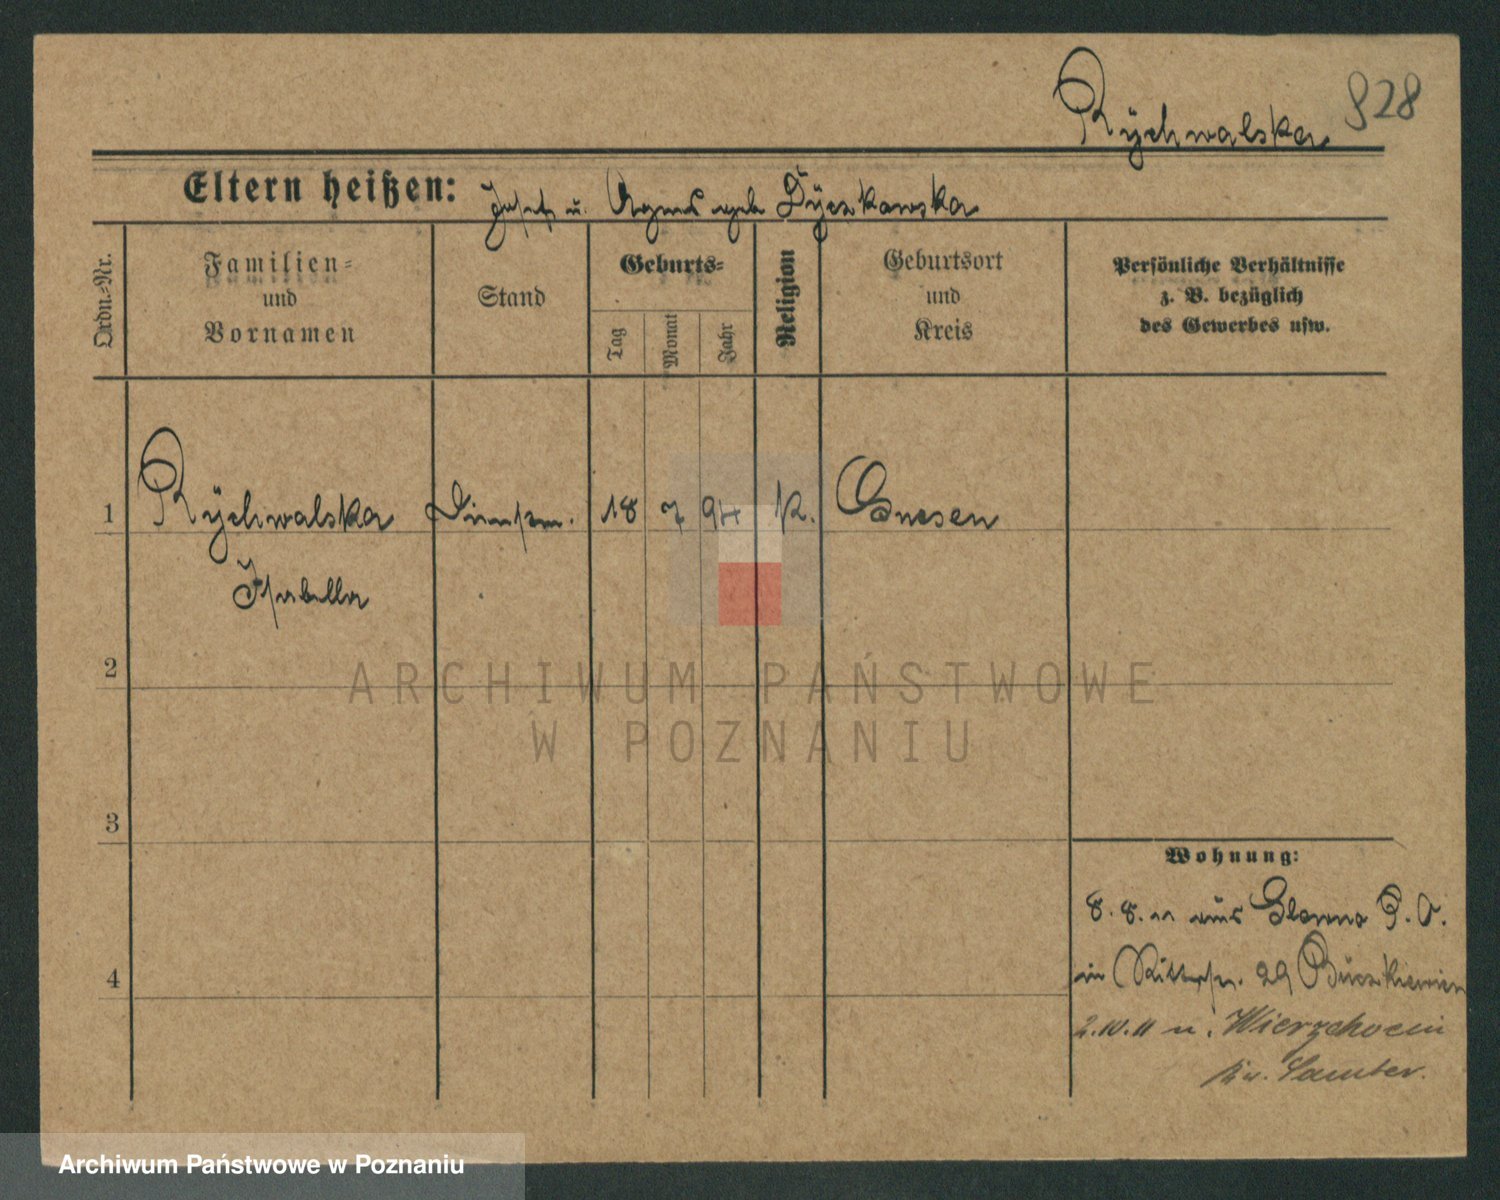 Rychwalska 928
Eltern heißen: Josef u. Agnes geb Dyczkowska
Ordn.-Nr.
Familien-
und
Vornamen
Stand
Geburts-
Tag
Monat
Jahr
Religion
Geburtsort
und
Kreis
Persönliche Verhältnisse
z. B. bezüglich
des Gewerbes usw.
1 Rychwalska 18 7 94 K. Gnesen
Isabella
2
ARCHIWUM PAŃSTWOWE
W POZNANIU
3
Wohnung:
8.8.11 aus P. O.
4 in Ritterstr. 29
2.10.11 n. Wierzchocin
Kr. Samter.
Archiwum Państwowe w Poznaniu